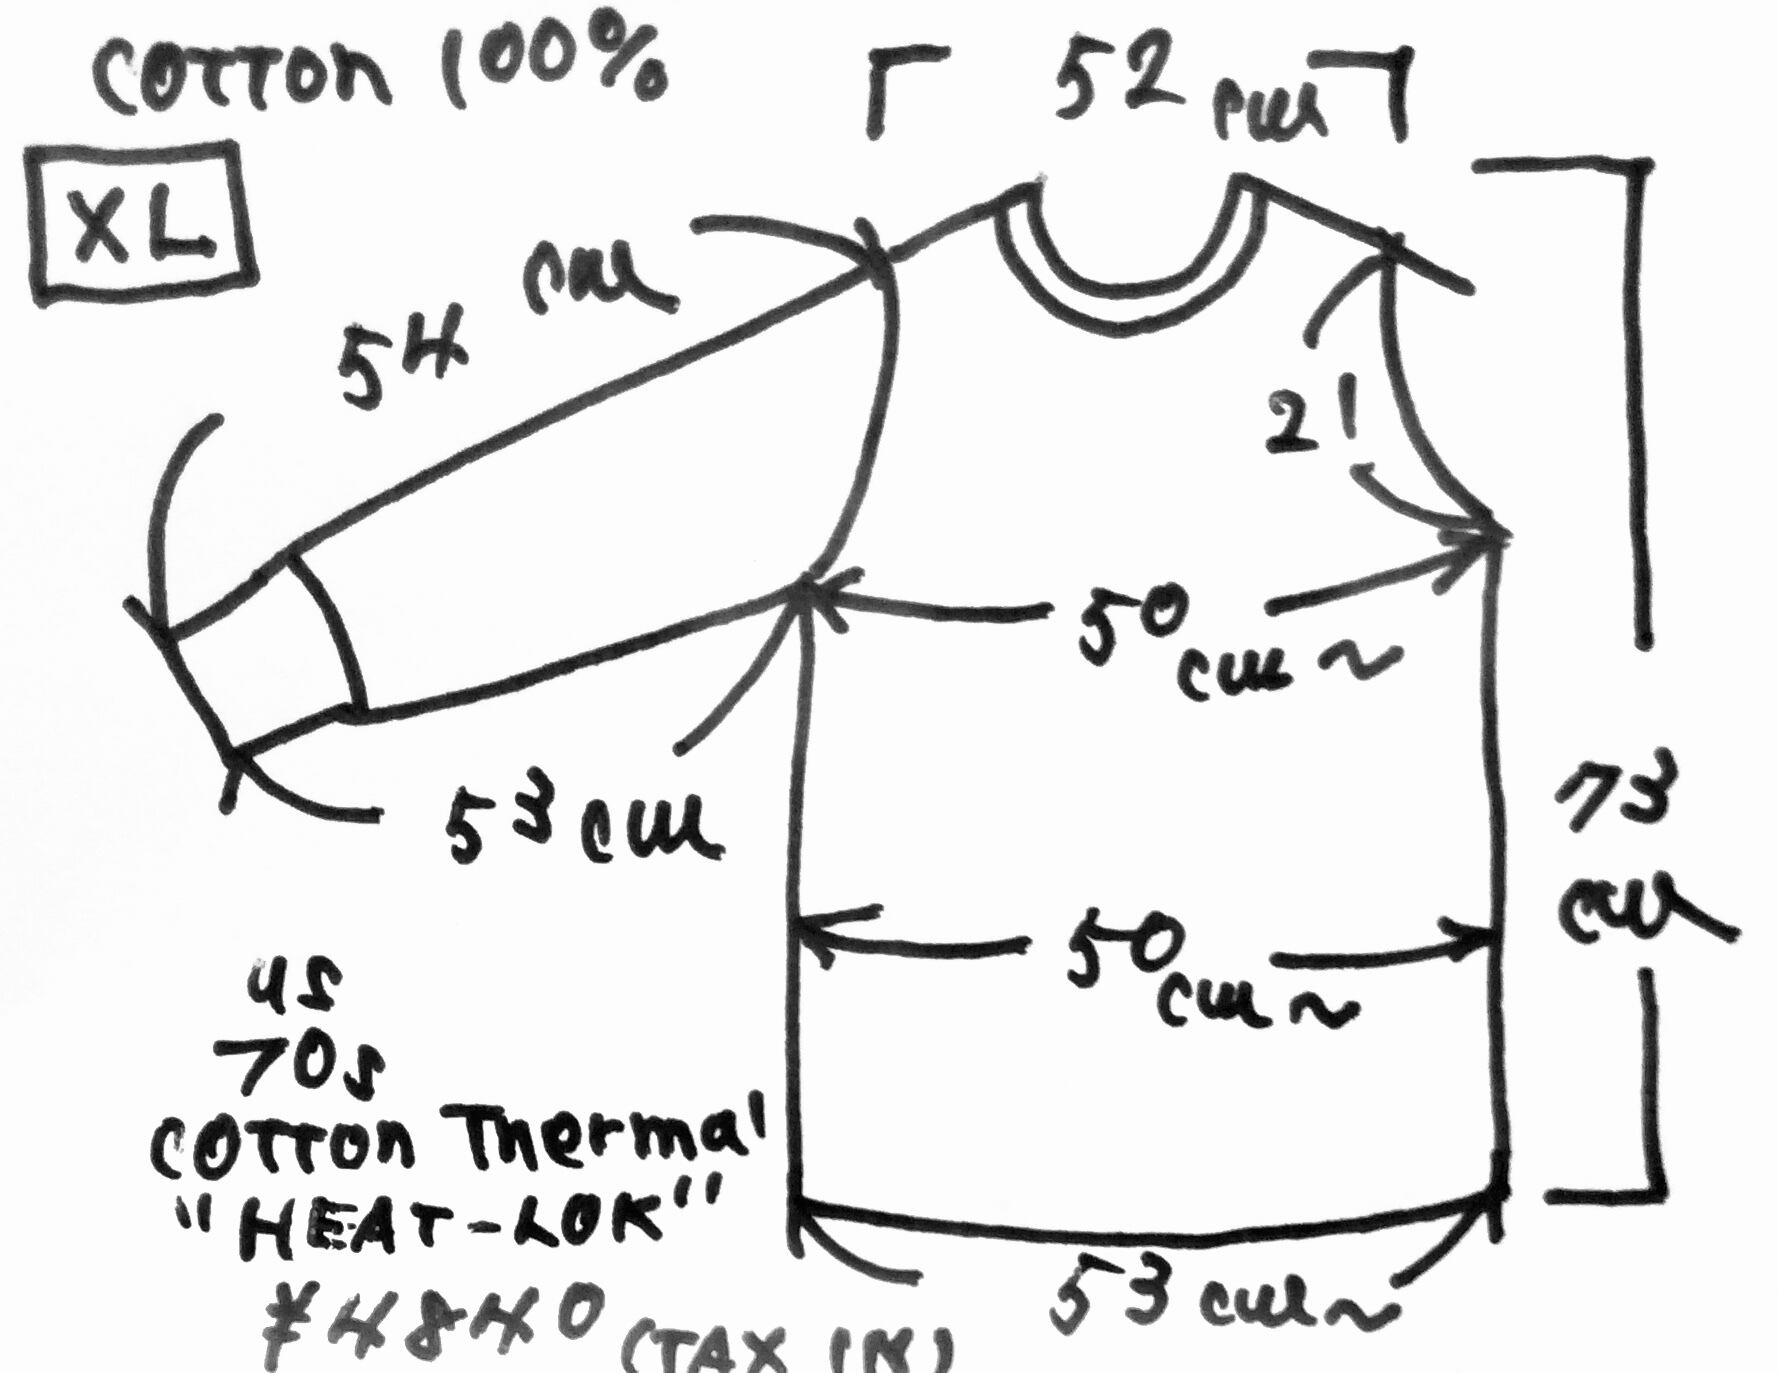 COTTON 100%
52 cm
XL
54 cm
21
50 cm ~
53 cm
73 cm
50 cm ~
us
70s
COTTON Thermal
"HEAT-LOK"
53 cm ~
¥4840 (TAX IN)